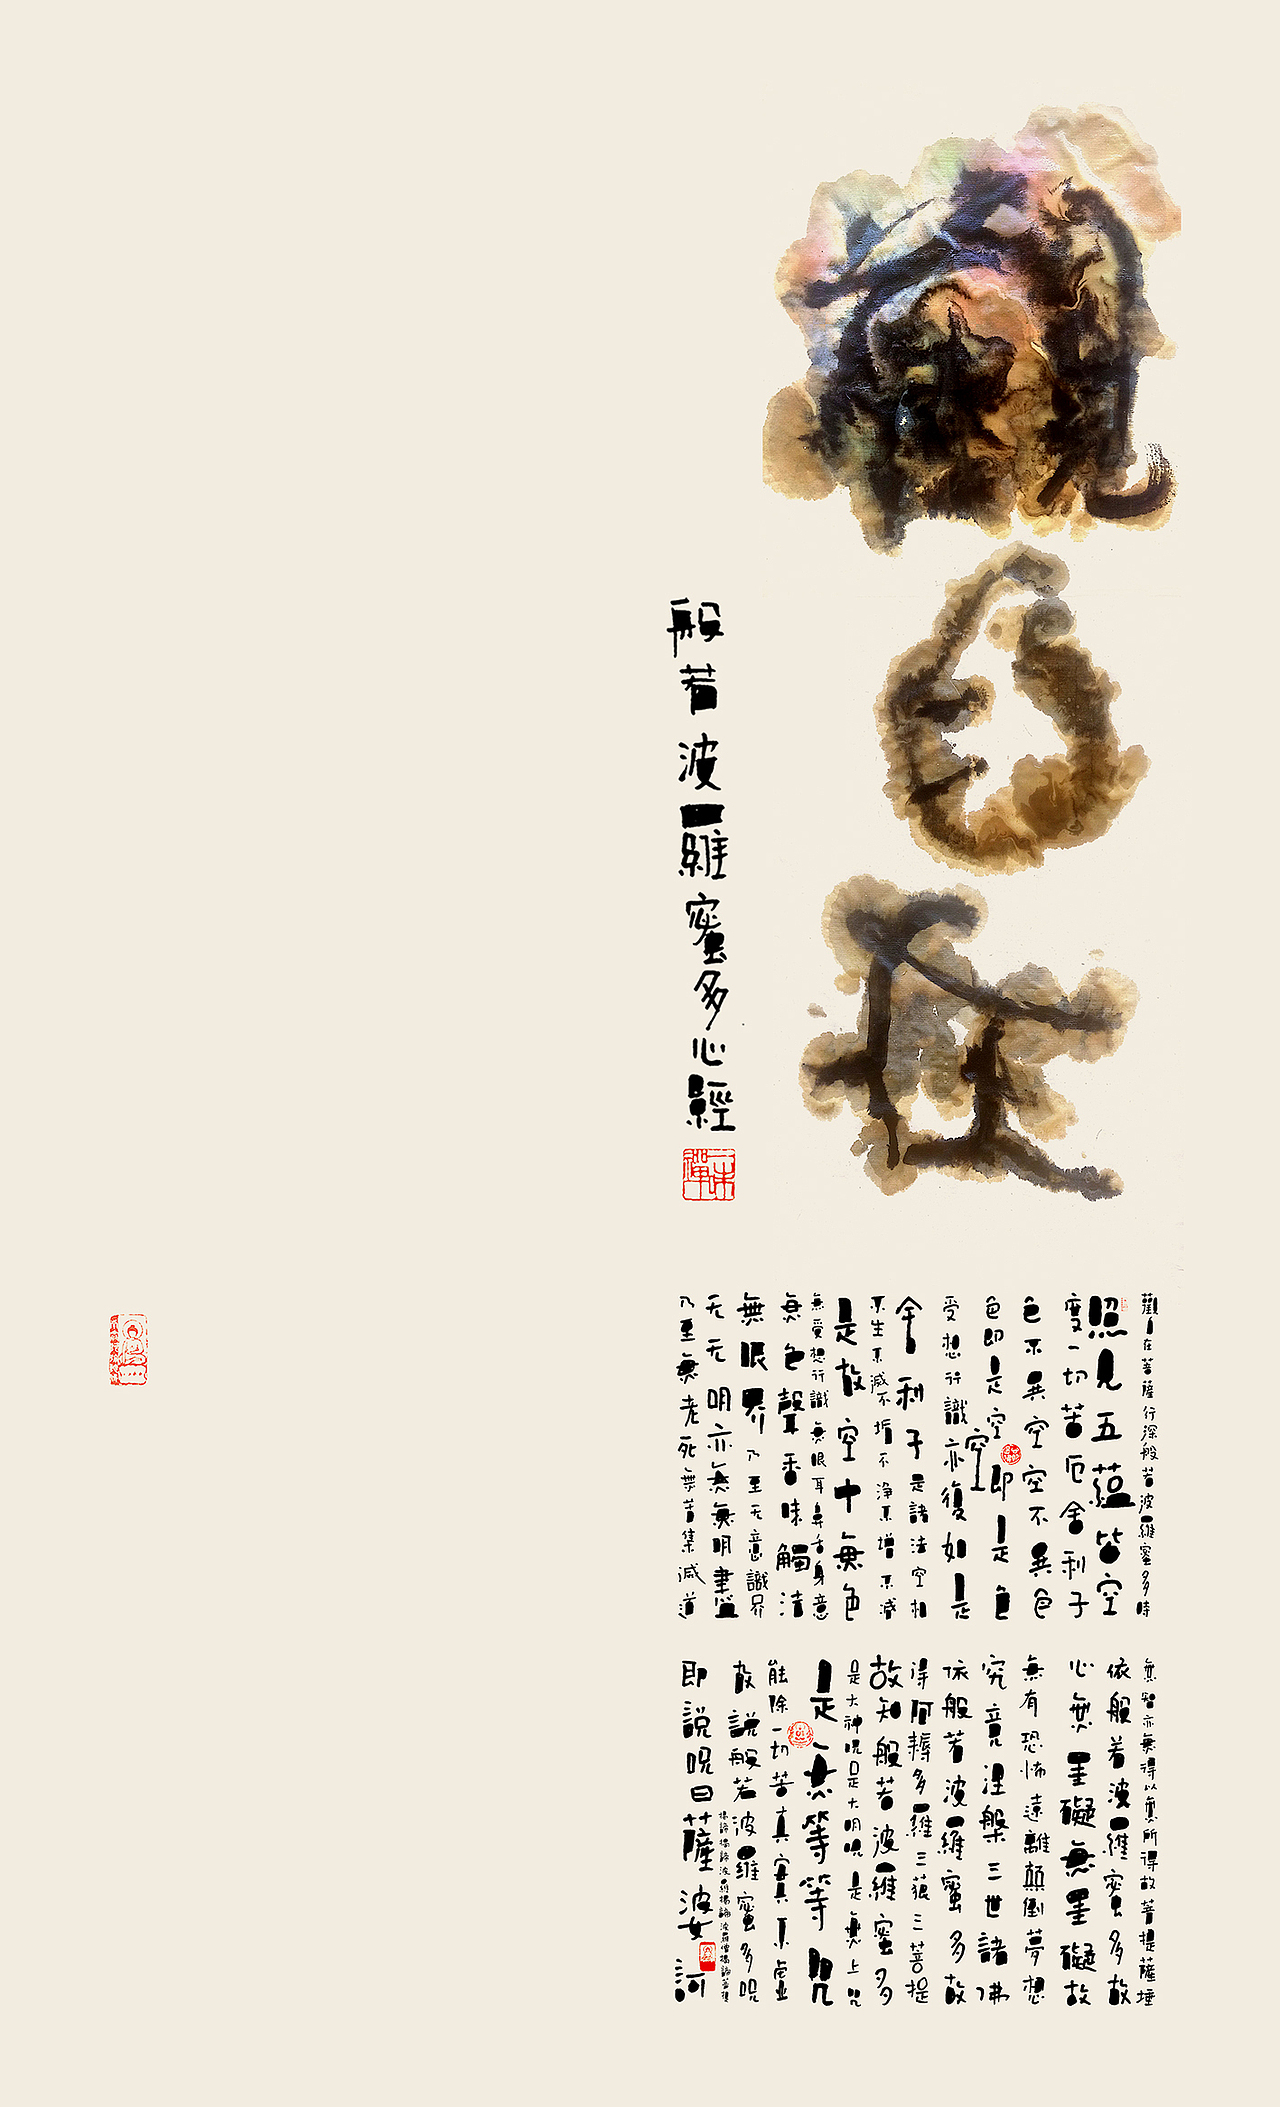 觀自在
般若波羅蜜多心經
一味禪
觀自在菩薩行深般若波羅蜜多時
照見五蘊皆空
度一切苦厄舍利子
色不異空空不異色
色即是空空即是色
受想行識亦復如是
舍利子是諸法空相
不生不滅不垢不淨不增不減
是故空中無色
無受想行識無眼耳鼻舌身意
無色聲香味觸法
無眼界乃至无意識界
无无明亦無無明盡
乃至無老死無苦集滅道
無智亦無得以無所得故菩提薩埵
依般若波羅蜜多故
心無罣礙無罣礙故
無有恐怖遠離顛倒夢想
究竟涅槃三世諸佛
依般若波羅蜜多故
得阿耨多羅三藐三菩提
故知般若波羅蜜多
是大神呪是大明呪是無上咒
是無等等咒
能除一切苦真實不虛
故說般若波羅蜜多呪
即說呪曰
揭諦揭諦波羅揭諦波羅僧揭諦菩提
薩婆訶